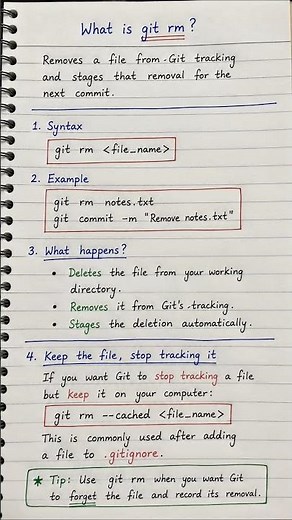 What is git rm?
Removes a file from Git tracking
and stages that removal for the
next commit.
1. Syntax
git rm <file_name>
2. Example
git rm notes.txt
git commit -m "Remove notes.txt"
3. What happens?
• Deletes the file from your working
directory.
• Removes it from Git's tracking.
• Stages the deletion automatically.
4. Keep the file, stop tracking it
If you want Git to stop tracking a file
but keep it on your computer:
git rm --cached <file_name>
This is commonly used after adding
a file to .gitignore.
* Tip: Use git rm when you want Git
to forget the file and record its removal.